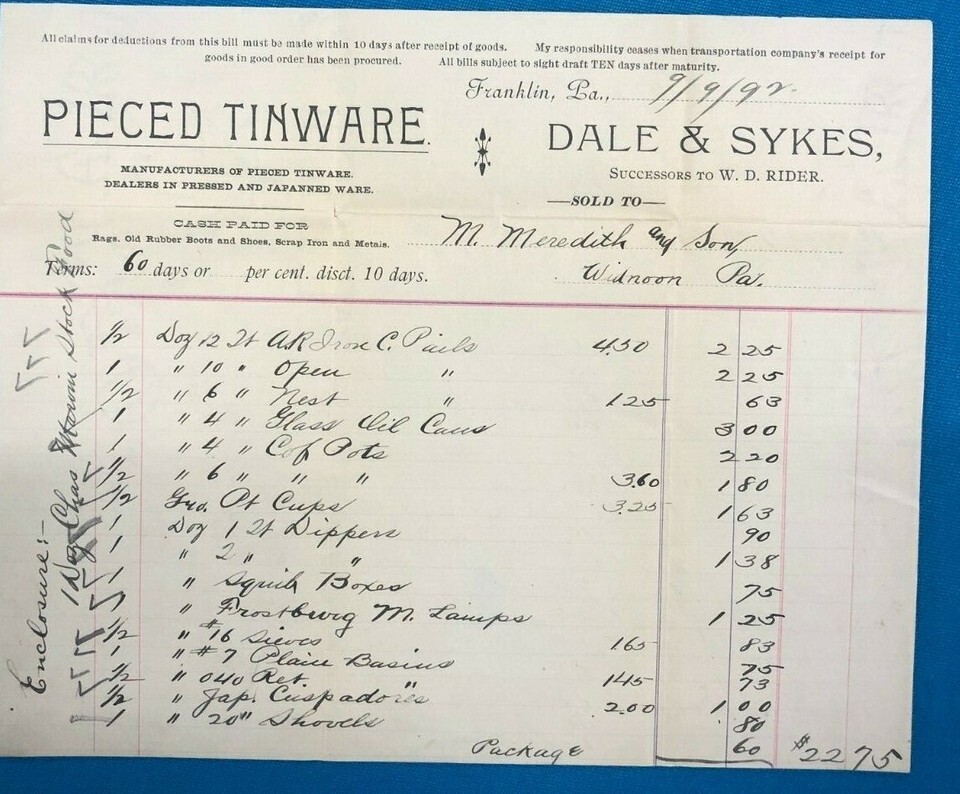 All claims for deductions from this bill must be made within 10 days after receipt of goods. My responsibility ceases when transportation company's receipt for
goods in good order has been procured. All bills subject to sight draft TEN days after maturity.
Franklin, Pa., 9/9/92.
PIECED TINWARE.
DALE & SYKES,
MANUFACTURERS OF PIECED TINWARE.
DEALERS IN PRESSED AND JAPANNED WARE.
SUCCESSORS TO W. D. RIDER.
—SOLD TO—
CASH PAID FOR
Rags, Old Rubber Boots and Shoes, Scrap Iron and Metals.
M. Meredith and Son,
Terms: 60 days or per cent. disct. 10 days.
Widnoon Pa.
1/2 Doz 12 Qt A.R. Iron C. Pails 4.50 2 25
1 " 10 " Open " 2 25
1/2 " 6 " Nest " 1 25 63
1 " 4 " Glass Oil Cans 3 00
1 " 4 " Cof Pots 2 20
1/2 " 6 " " " 3.60 1 80
1/2 Gro. Pt Cups 3.25 1 63
1 Doz 1 Qt Dippers 90
1 " 2 " " 1 38
1 " Squib Boxes 75
1 " Frostburg M. Lamps 1 25
1/2 " #16 Sieves 1.65 83
1 " #7 Plain Basins 75
1/2 " 040 Ret. " 1 45 73
1/2 " Jap. Cuspadores 2.00 1 00
1 " 20" Shovels 80
Package 60 $22 75
Enclosure:-
1 Doz Chas Stock Food